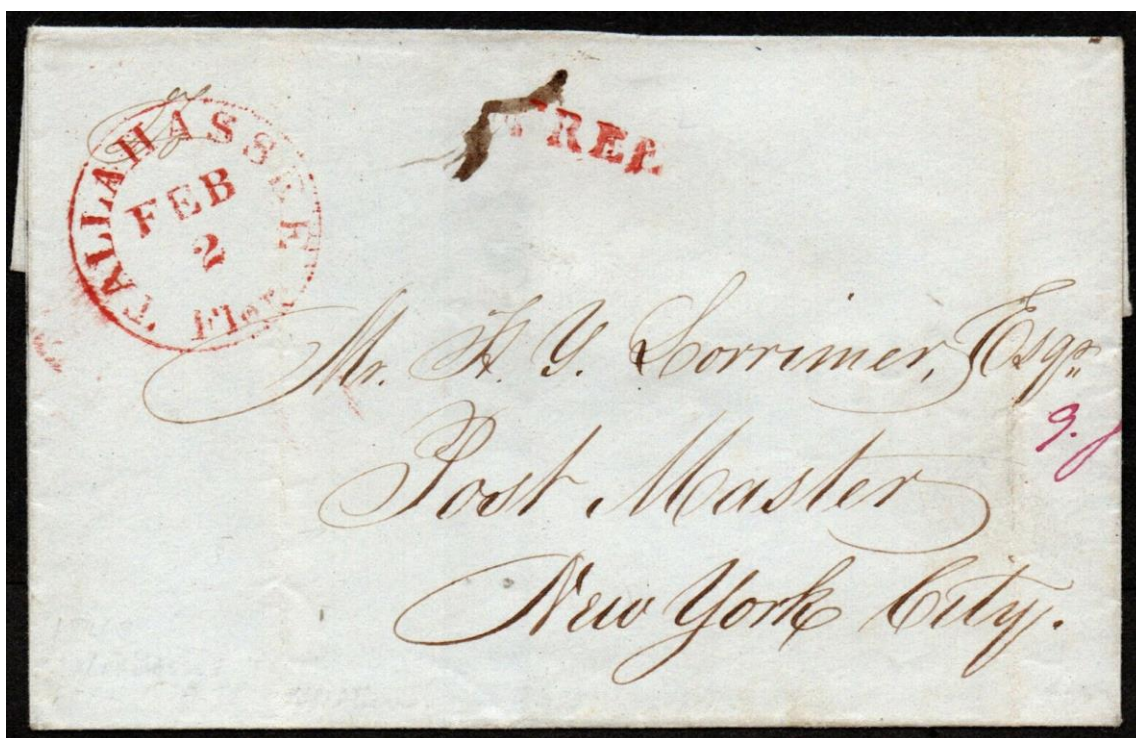 TALLAHASSEE
FEB
2
Flor
FREE
Mr. H. Y. Lorrimer, Esqr.
Post Master
New York City.